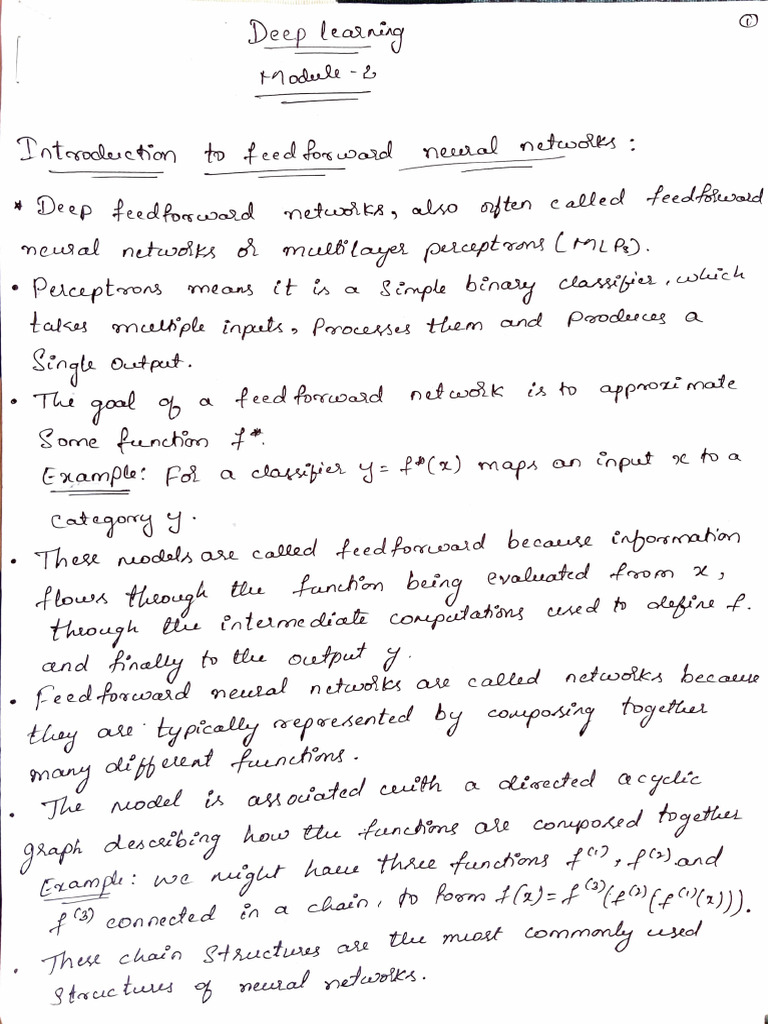 ①
Deep learning
Module - 2
Introduction to feed forward neural networks :
* Deep feedforward networks, also often called feedforward
neural networks or multilayer perceptrons (MLPs).
• Perceptrons means it is a simple binary classifier, which
takes multiple inputs, processes them and produces a
single output.
• The goal of a feed forward network is to approximate
some function f*.
Example: For a classifier y = f*(x) maps an input x to a
category y.
• These models are called feedforward because information
flows through the function being evaluated from x,
through the intermediate computations used to define f.
and finally to the output y.
• Feed forward neural networks are called networks because
they are typically represented by composing together
many different functions.
• The model is associated with a directed acyclic
graph describing how the functions are composed together
Example: we might have three functions f⁽¹⁾, f⁽²⁾ and
f⁽³⁾ connected in a chain, to form f(x) = f⁽³⁾(f⁽²⁾(f⁽¹⁾(x))).
• These chain structures are the most commonly used
structures of neural networks.